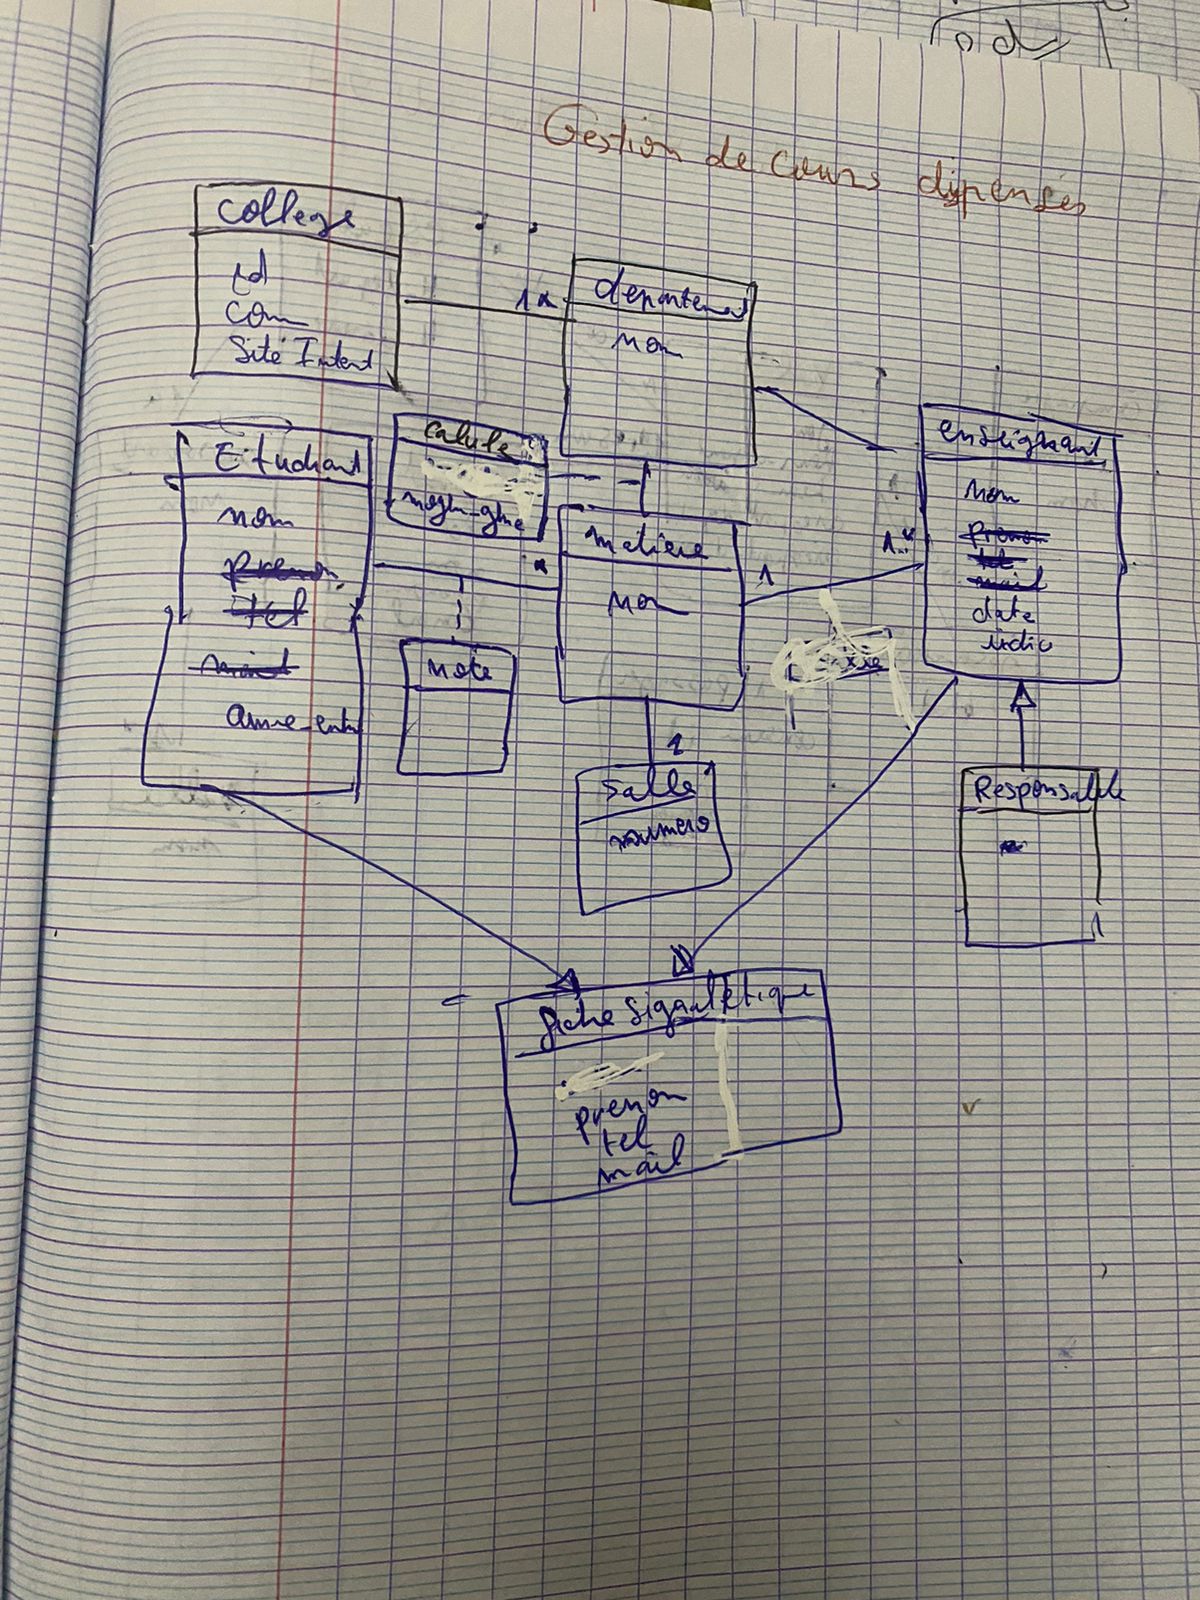 Gestion de cours dipensés
college
id
Com
Site Intent
1*
departement
Nom
calule
moyen_gne
Etudiant
nom
prenom
tel
mail
anne_entr
*
matiere
Nom
1
1..*
enseignant
Nom
prenom
tel
mail
date
indic
note
1
Salle
numero
Responsable
1
fiche Signaletique
prenom
tel
mail